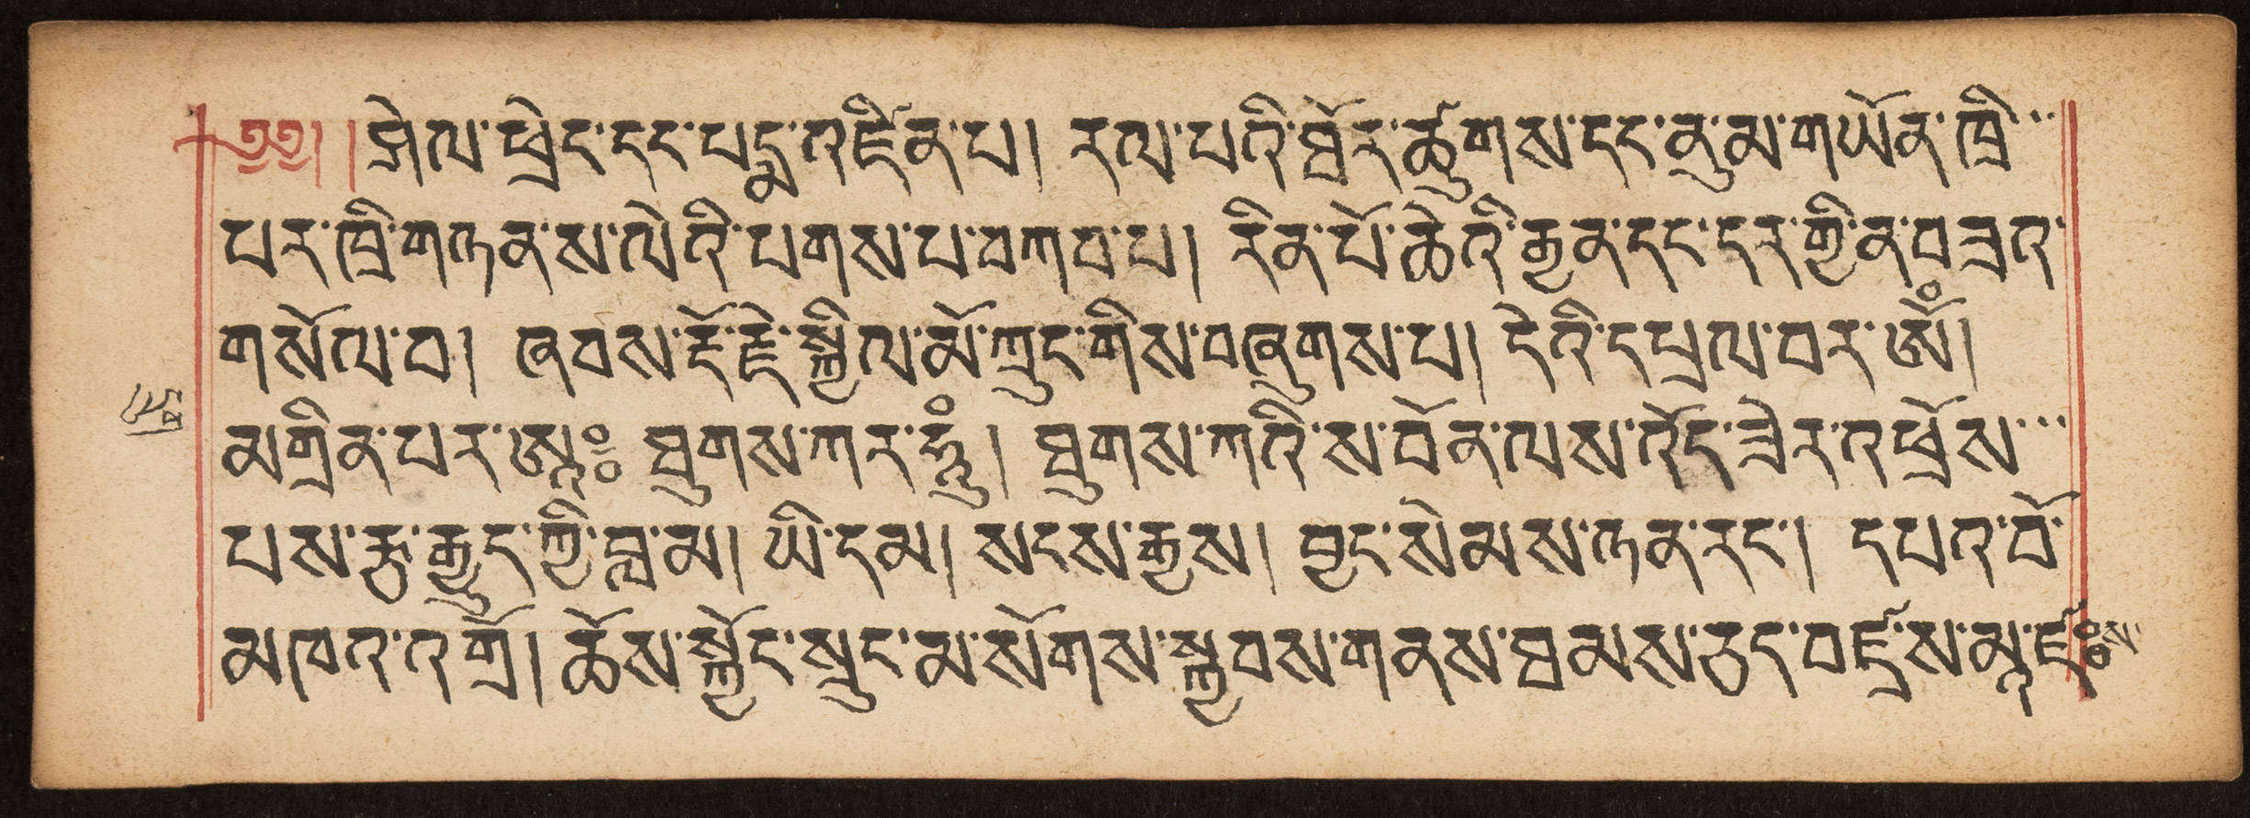 ༄༅། །ཤེལ་ཕྲེང་དང་པདྨ་འཛིན་པ། རལ་པའི་ཐོར་ཚུགས་དང་ནུ་མ་གཡོན་ཁྲི་
པར་ཁྲི་གཉན་ས་ལེའི་པགས་པ་བཀབ་པ། རིན་པོ་ཆེའི་རྒྱན་དང་དར་གྱི་ན་བཟའ་
གསོལ་བ། ཞབས་རྡོ་རྗེ་སྐྱིལ་མོ་ཀྲུང་གིས་བཞུགས་པ། དེའི་དཔྲལ་བར་ཨོཾ།
མགྲིན་པར་ཨཱཿ ཐུགས་ཀར་ཧཱུྃ། ཐུགས་ཀའི་ས་བོན་ལས་འོད་ཟེར་འཕྲོས་
པས་རྩ་རྒྱུད་ཀྱི་བླ་མ། ཡི་དམ། སངས་རྒྱས། བྱང་སེམས་ཉན་རང་། དཔའ་བོ་
མཁའ་འགྲོ། ཆོས་སྐྱོང་སྲུང་མ་སོགས་སྐྱབས་གནས་ཐམས་ཅད་བཛྲ་ས་མཱ་ཛཿས